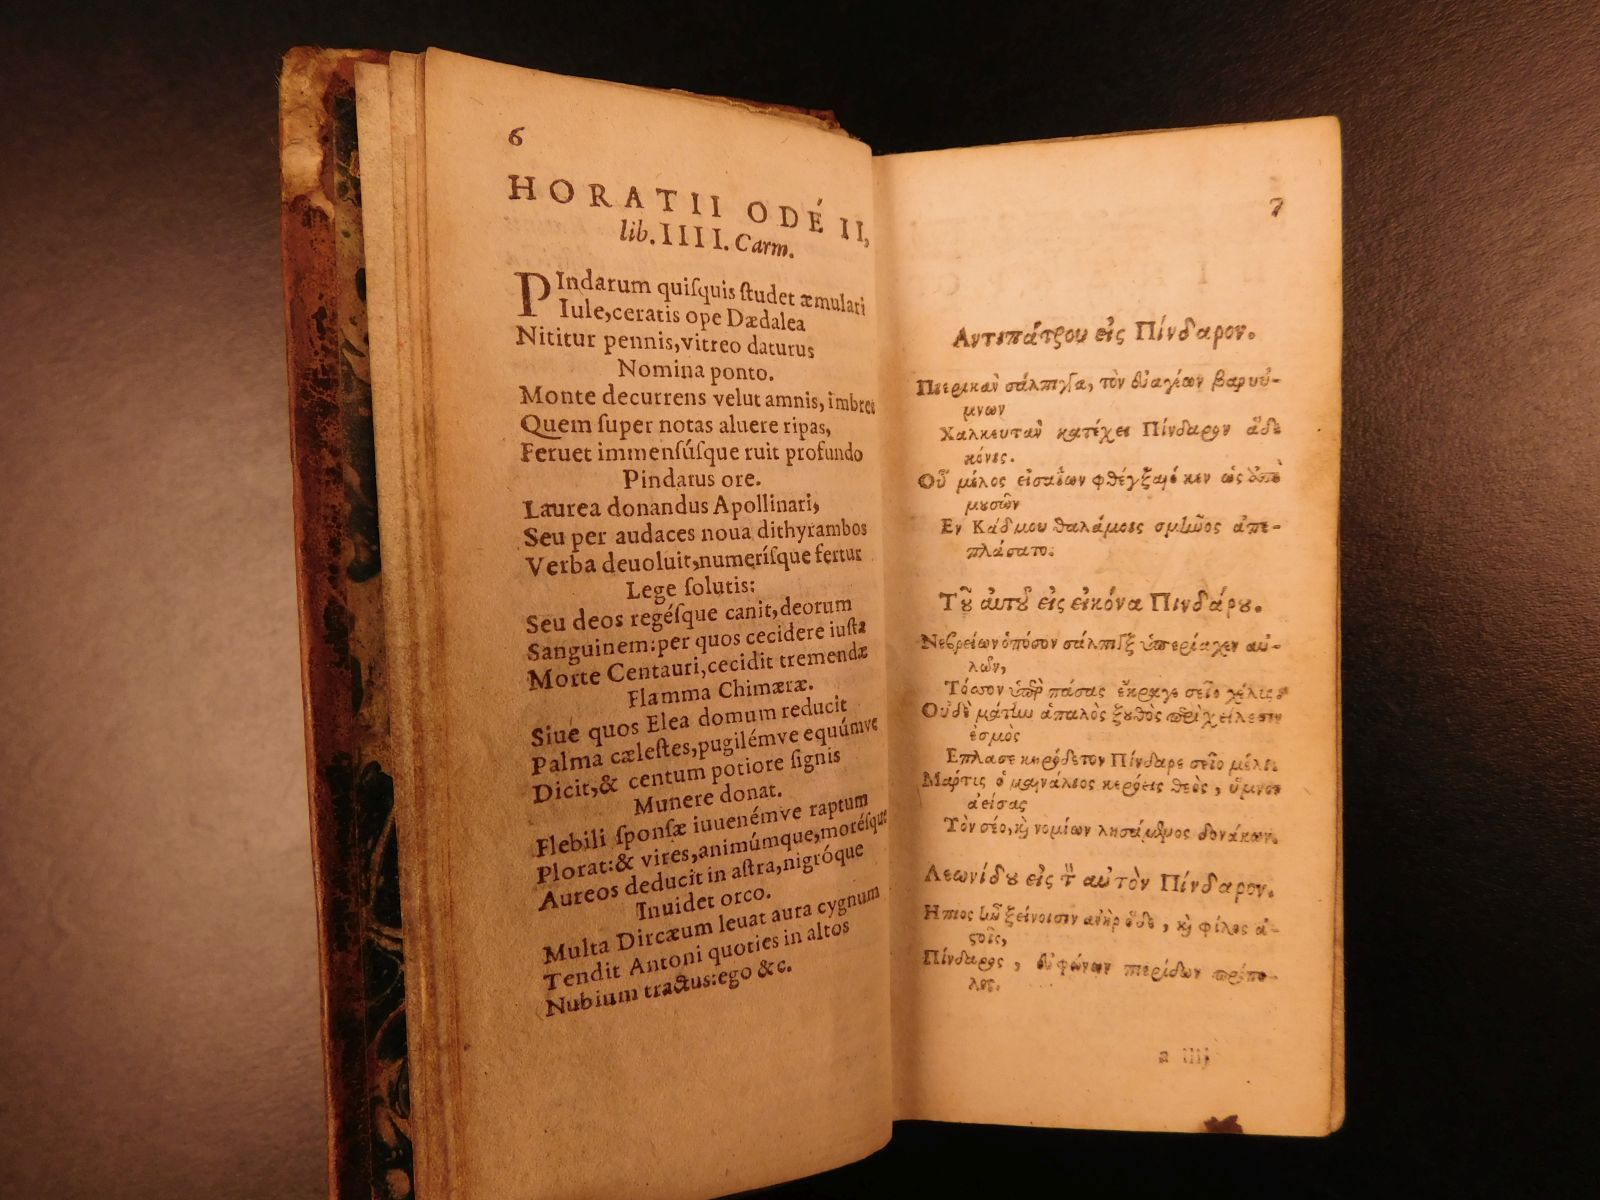 6
HORATII ODÉ II,
lib. IIII. Carm.
PIndarum quiſquis ſtudet æmulari
Iule, ceratis ope Dædalea
Nititur pennis, vitreo daturus
Nomina ponto.
Monte decurrens velut amnis, imbres
Quem ſuper notas aluere ripas,
Feruet immenſúſque ruit profundo
Pindarus ore.
Laurea donandus Apollinari,
Seu per audaces noua dithyrambos
Verba deuoluit, numeríſque fertur
Lege ſolutis:
Seu deos regéſque canit, deorum
Sanguinem: per quos cecidere iuſta
Morte Centauri, cecidit tremendæ
Flamma Chimæræ.
Siue quos Elea domum reducit
Palma cæleſtes, pugilémve equúmve
Dicit, & centum potiore ſignis
Munere donat.
Flebili ſponſæ iuuenémve raptum
Plorat: & vires, animúmque, moréſque
Aureos deducit in aſtra, nigróque
Inuidet orco.
Multa Dircæum leuat aura cygnum
Tendit Antoni quoties in altos
Nubium tractus: ego &c.
7
Αντιπάτρου εἰς Πίνδαρον.
Πιερικὰν σάλπιγγα, τὸν εὐαγέων βαρυΰ-
μνων
Χαλκευτὰν κατέχει Πίνδαρον ἅδε
κόνις.
Οὗ μέλος εἰσαΐων φθέγξαιό κεν ὡς ἀπὸ
μουσῶν
Εν Κάδμου θαλάμοις σμῆνος ἀπε-
πλάσατο.
Τοῦ αὐτοῦ εἰς εἰκόνα Πινδάρου.
Νεβρείων ὁπόσον σάλπιγξ ὑπερίαχεν αὐ-
λῶν,
Τόσσον ὑπὲρ πάσας ἔκραγε σεῖο χέλις.
Οὐδὲ μάτην ἁπαλὸς ξουθὸς περὶ χείλεσιν
ἑσμὸς
Επλασε κηρόδετον Πίνδαρε σεῖο μέλι.
Μάρτις ὁ μαινάλιος κερόεις θεὸς, ὕμνον
ἀείσας
Τὸν σέο, καὶ νομίων λησάμενος δονάκων.
Λεωνίδου εἰς τὸν αὐτὸν Πίνδαρον.
Ηπιος ἦν ξείνοισιν ἀνὴρ ὅδε, καὶ φίλος ἀ-
στοῖς,
Πίνδαρος, εὐφώνων πιερίδων πρόπο-
λος.
a iiij